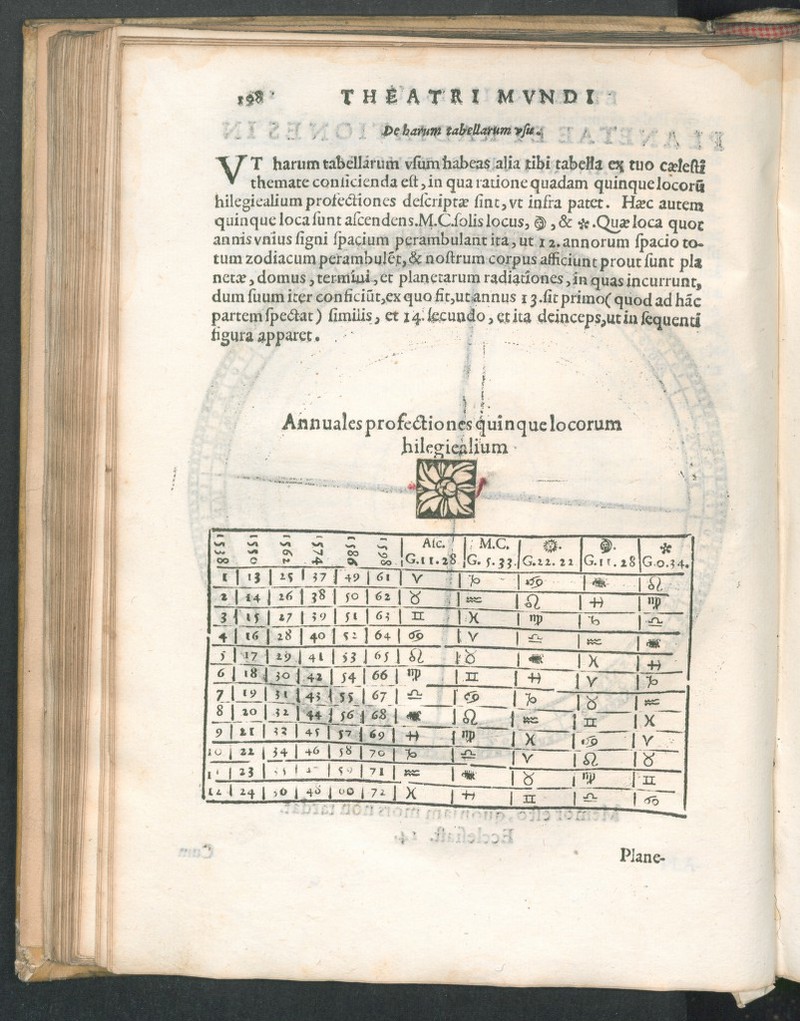 198
THEATRI MVNDI
De harum tabellarum vſu.
VT harum tabellarum vſum habeas alia tibi tabella ex tuo cæleſti
themate conficienda eſt, in qua ratione quadam quinque locorũ
hilegiealium profectiones deſcriptæ ſint, vt infra patet. Hæc autem
quinque loca ſunt aſcendens. M.C. ſolis locus, , & . Quæ loca quot
annis vnius ſigni ſpacium perambulant ita, ut 12. annorum ſpacio to-
tum zodiacum perambulẽt, & noſtrum corpus afficiunt prout ſunt pla
netæ, domus, termini, et planetarum radiationes, in quas incurrunt,
dum ſuum iter conficiũt, ex quo fit, ut annus 13. ſit primo (quod ad hãc
partem ſpectat) ſimilis, et 14. ſecundo, et ita deinceps, ut in ſequenti
figura apparet.
Annuales profectiones quinque locorum
hilegiealium
1538 1550 1562 1574 1586 1598 Aſc. G.11.28 M.C. G. 5.33. G.22.22 G.11.28 G.0.34.
1 13 25 37 49 61 ♈ ♑ ♋ ♏ ♌
2 14 26 38 50 62 ♉ ♒ ♌ ♐ ♍
3 15 27 39 51 63 ♊ ♓ ♍ ♑ ♎
4 16 28 40 52 64 ♋ ♈ ♎ ♒ ♏
5 17 29 41 53 65 ♌ ♉ ♏ ♓ ♐
6 18 30 42 54 66 ♍ ♊ ♐ ♈ ♑
7 19 31 43 55 67 ♎ ♋ ♑ ♉ ♒
8 20 32 44 56 68 ♏ ♌ ♒ ♊ ♓
9 21 33 45 57 69 ♐ ♍ ♓ ♋ ♈
10 22 34 46 58 70 ♑ ♎ ♈ ♌ ♉
23 71 ♒ ♏ ♉ ♍ ♊
12 24 72 ♓ ♐ ♊ ♎ ♋
Plane-